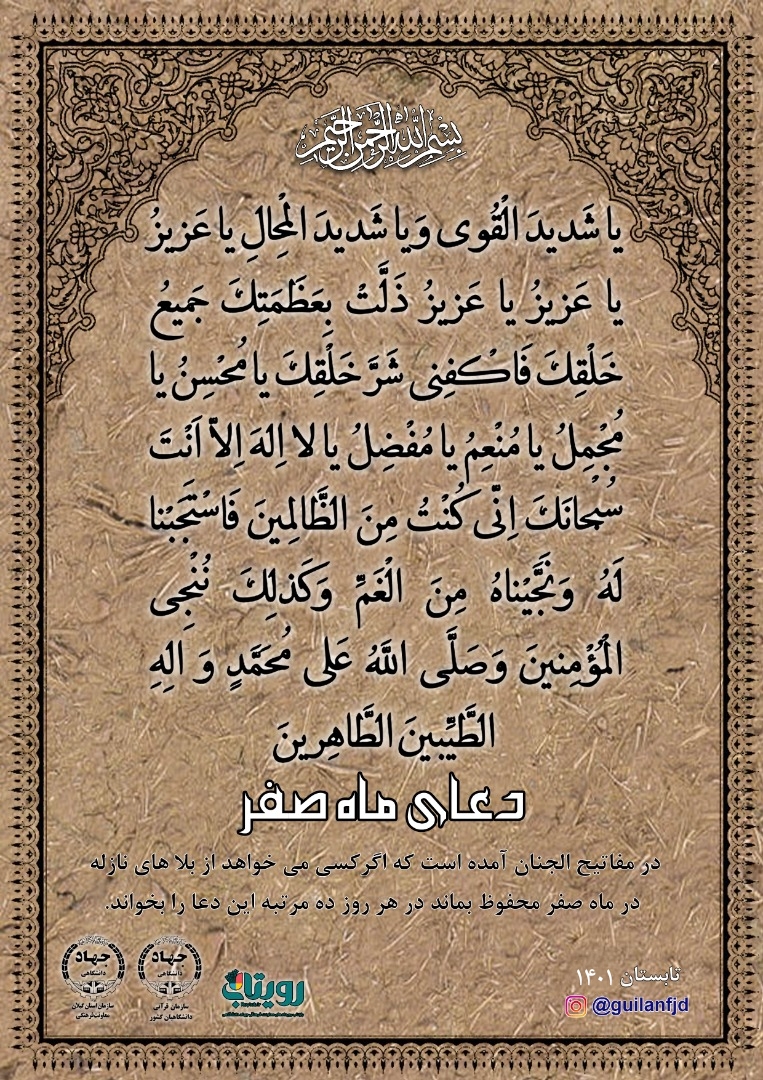 بِسْمِ اللهِ الرَّحْمنِ الرَّحيمِ
يا شَديدَ الْقُوى وَيا شَديدَ الْمِحالِ يا عَزيزُ
يا عَزيزُ يا عَزيزُ ذَلَّتْ بِعَظَمَتِكَ جَميعُ
خَلْقِكَ فَاكْفِنى شَرَّ خَلْقِكَ يا مُحْسِنُ يا
مُجْمِلُ يا مُنْعِمُ يا مُفْضِلُ يا لا اِلهَ اِلاَّ اَنْتَ
سُبْحانَكَ اِنّى كُنْتُ مِنَ الظَّالِمينَ فَاسْتَجَبْنا
لَهُ وَنَجَّيْناهُ مِنَ الْغَمِّ وَكَذلِكَ نُنْجِى
الْمُؤْمِنينَ وَصَلَّى اللَّهُ عَلى مُحَمَّدٍ وَ الِهِ
الطَّيِّبينَ الطَّاهِرينَ
دعای ماه صفر
در مفاتیح الجنان آمده است که اگرکسی می خواهد از بلا های نازله
در ماه صفر محفوظ بماند در هر روز ده مرتبه این دعا را بخواند.
تابستان ۱۴۰۱
@guilanfjd
رویتاب
جهاد
دانشگاهی
سازمان قرآنی
دانشگاهیان کشور
جهاد
دانشگاهی
سازمان استان گیلان
معاونت فرهنگی